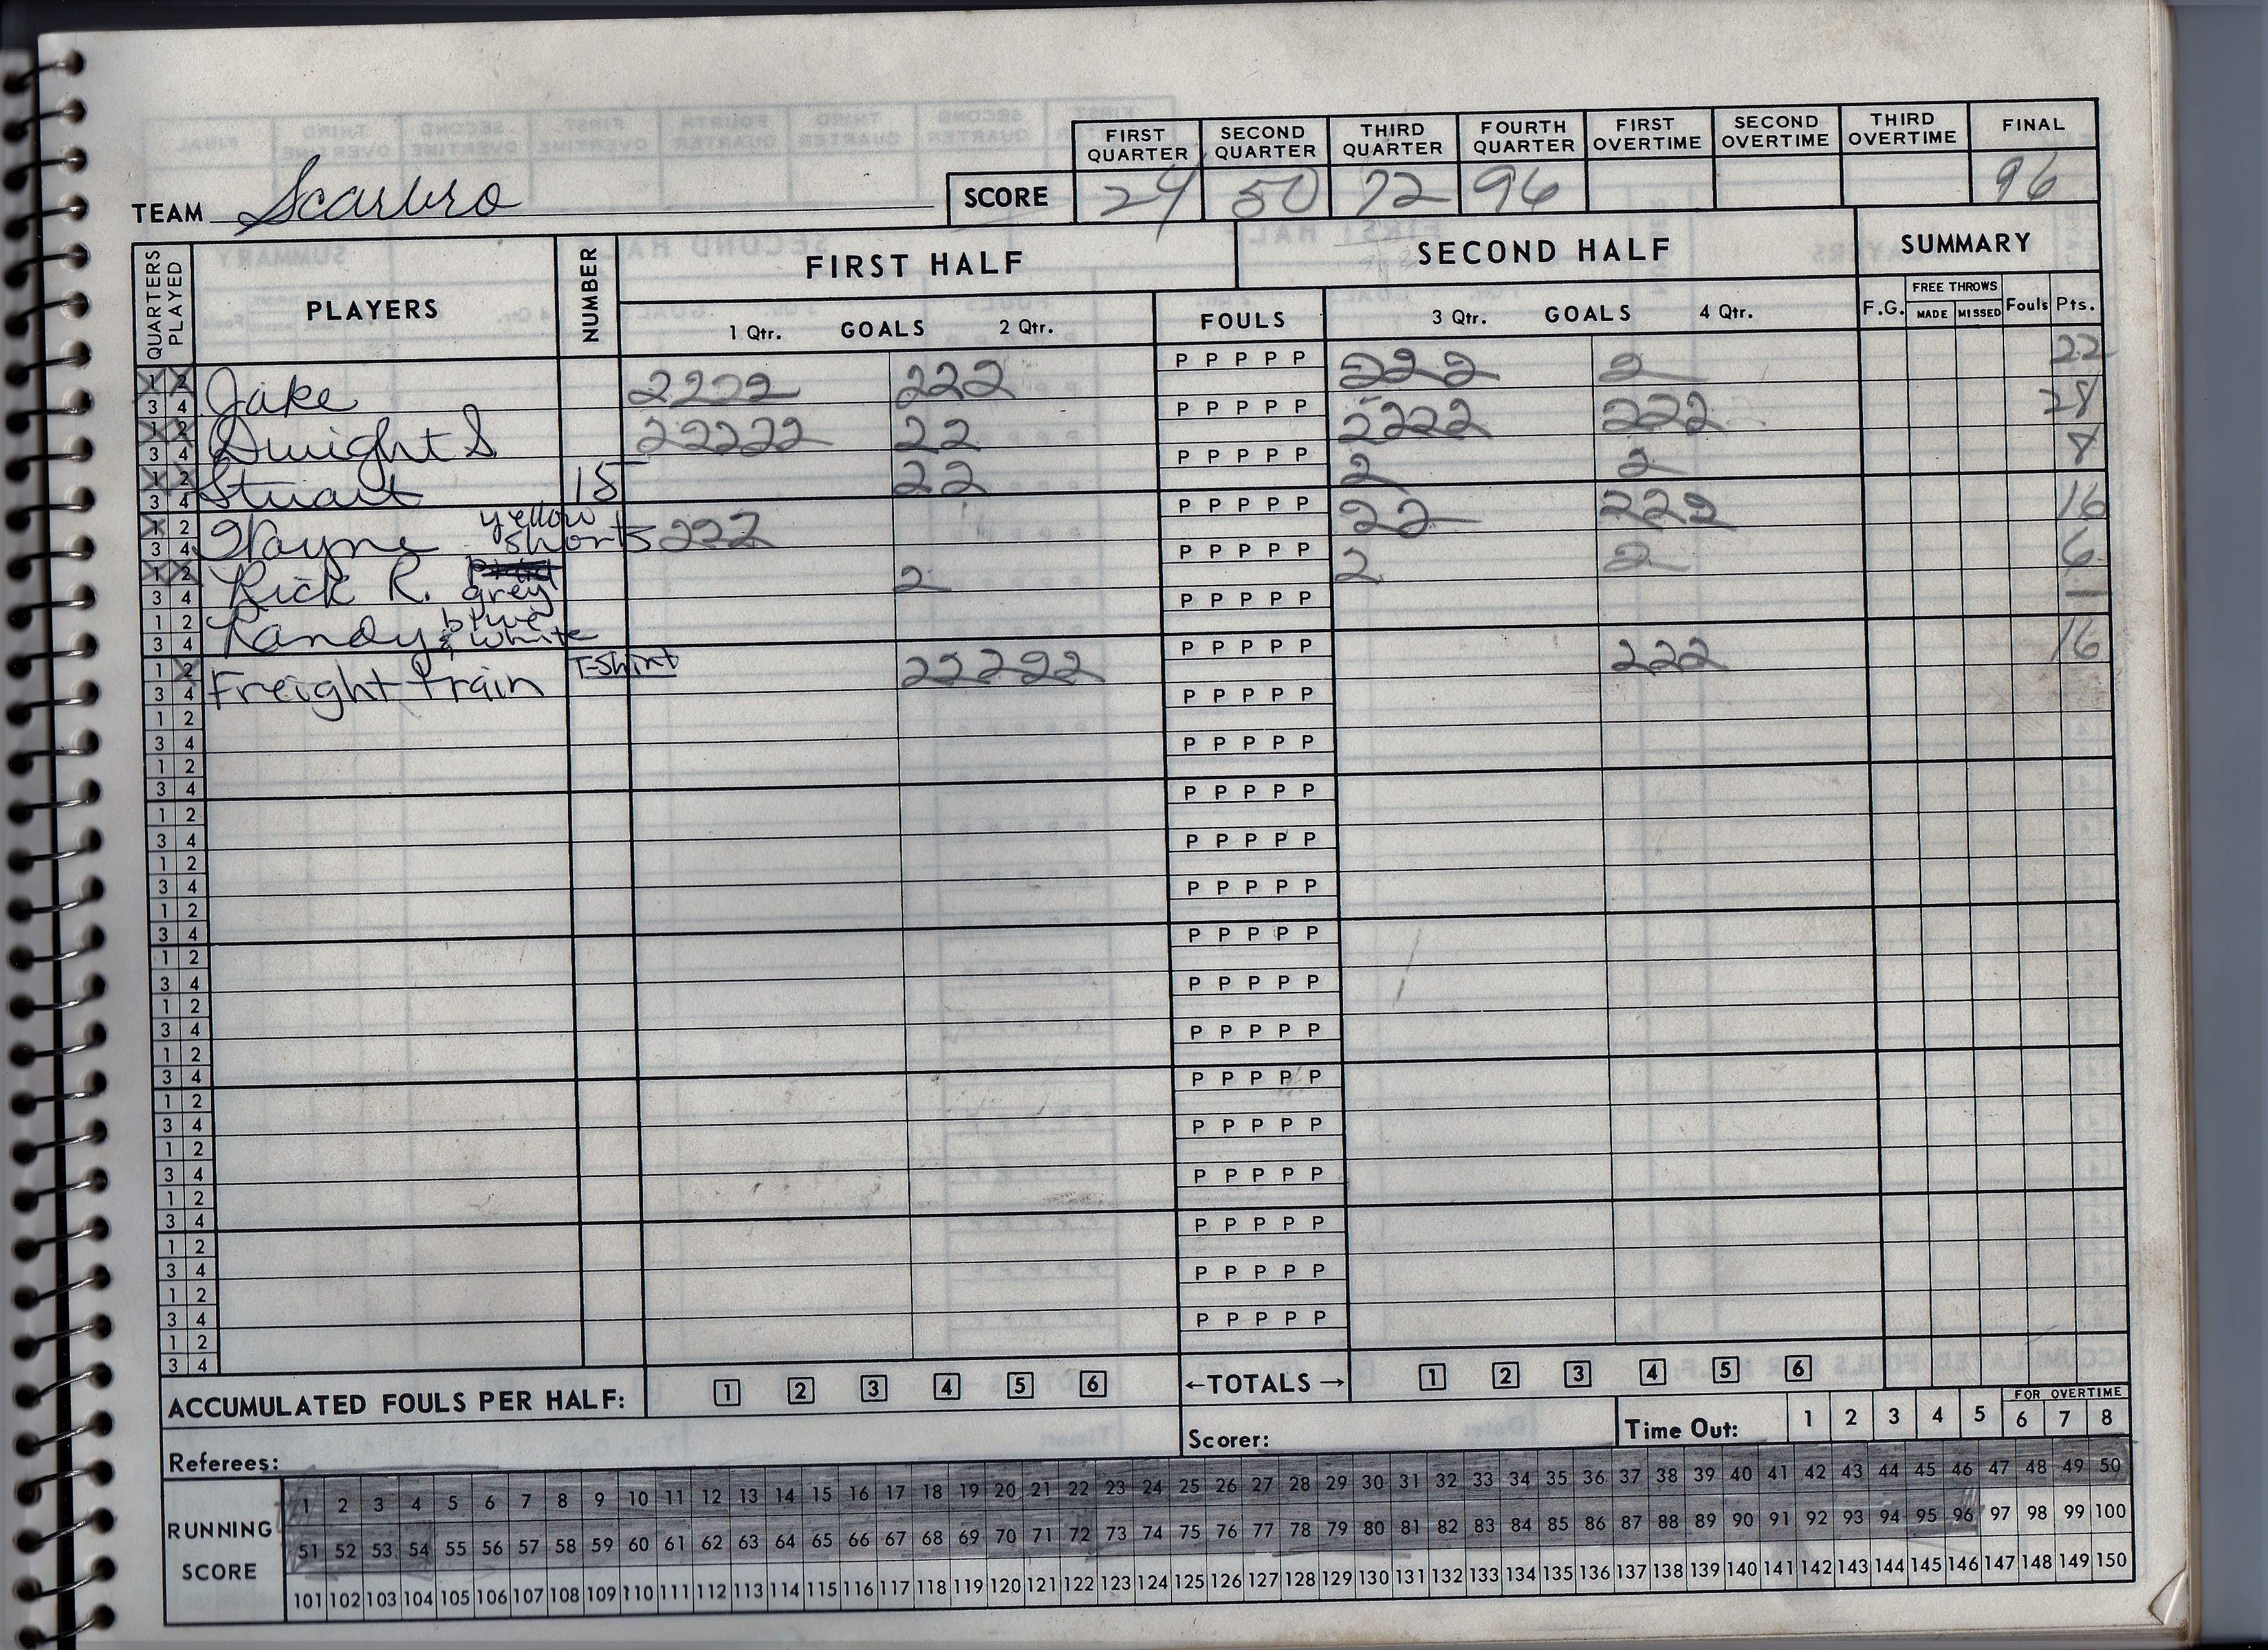 FIRST QUARTER SECOND QUARTER THIRD QUARTER FOURTH QUARTER FIRST OVERTIME SECOND OVERTIME THIRD OVERTIME FINAL
TEAM Scarbro SCORE 24 50 72 96 96
QUARTERS PLAYED PLAYERS NUMBER FIRST HALF SECOND HALF SUMMARY
1 Qtr. GOALS 2 Qtr. FOULS 3 Qtr. GOALS 4 Qtr. F.G. FREE THROWS MADE MISSED Fouls Pts.
1 2 3 4 Jake 2222 222 P P P P P 222 2 22
1 2 3 4 Dwight S 22222 22 P P P P P 2222 222 28
1 2 3 4 Stuart 15 22 P P P P P 2 2 8
1 2 3 4 Wayne yellow shorts 222 P P P P P 22 222 16
1 2 3 4 Rick R. grey 2 P P P P P 2 2 6
1 2 3 4 Randy blue & white P P P P P —
1 2 3 4 Freight train T-Shirt 22222 P P P P P 222 16
1 2 3 4 P P P P P
1 2 3 4 P P P P P
1 2 3 4 P P P P P
1 2 3 4 P P P P P
1 2 3 4 P P P P P
1 2 3 4 P P P P P
1 2 3 4 P P P P P
1 2 3 4 P P P P P
1 2 3 4 P P P P P
1 2 3 4 P P P P P
1 2 3 4 P P P P P
1 2 3 4 P P P P P
1 2 3 4 P P P P P
1 2 3 4 P P P P P
ACCUMULATED FOULS PER HALF: 1 2 3 4 5 6 ←TOTALS→ 1 2 3 4 5 6
Referees: Scorer: Time Out: 1 2 3 4 5 FOR OVERTIME 6 7 8
RUNNING SCORE
1 2 3 4 5 6 7 8 9 10 11 12 13 14 15 16 17 18 19 20 21 22 23 24 25 26 27 28 29 30 31 32 33 34 35 36 37 38 39 40 41 42 43 44 45 46 47 48 49 50
51 52 53 54 55 56 57 58 59 60 61 62 63 64 65 66 67 68 69 70 71 72 73 74 75 76 77 78 79 80 81 82 83 84 85 86 87 88 89 90 91 92 93 94 95 96 97 98 99 100
101 102 103 104 105 106 107 108 109 110 111 112 113 114 115 116 117 118 119 120 121 122 123 124 125 126 127 128 129 130 131 132 133 134 135 136 137 138 139 140 141 142 143 144 145 146 147 148 149 150